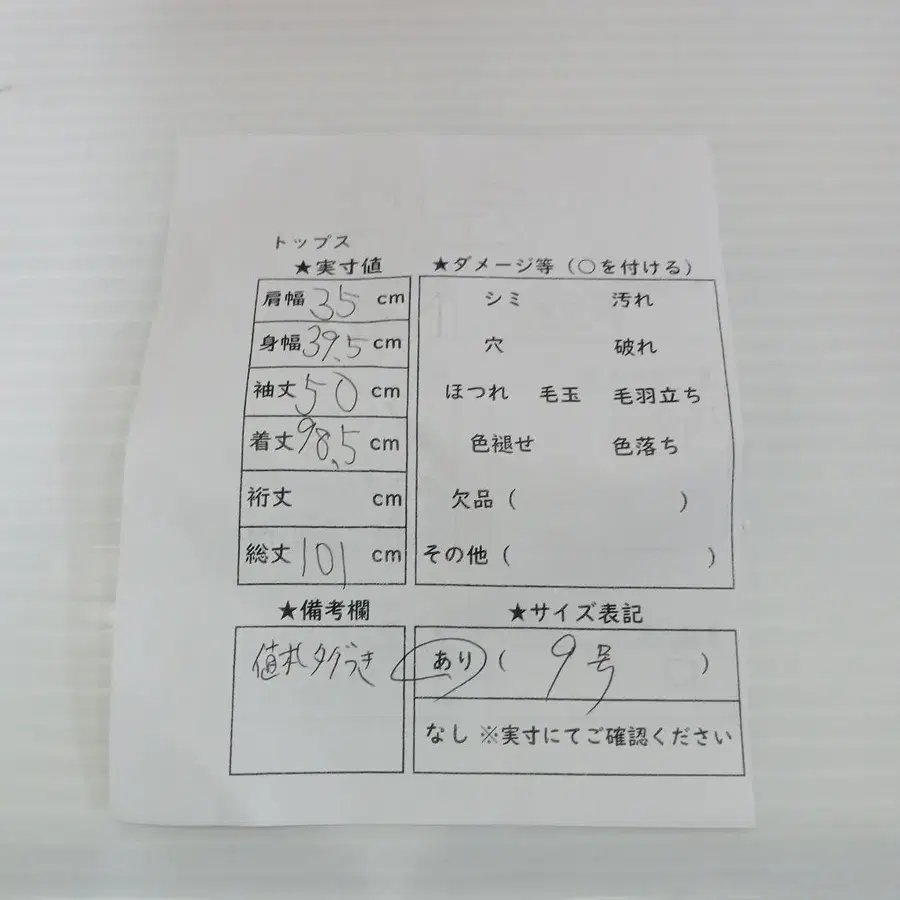 トップス
★実寸値
肩幅 35 cm
身幅 39.5 cm
袖丈 50 cm
着丈 98.5 cm
裄丈 cm
総丈 101 cm
★ダメージ等（○を付ける）
シミ 汚れ
穴 破れ
ほつれ 毛玉 毛羽立ち
色褪せ 色落ち
欠品（ ）
その他（ ）
★備考欄
値札タグつき
★サイズ表記
あり（ 9号 ）
なし ※実寸にてご確認ください